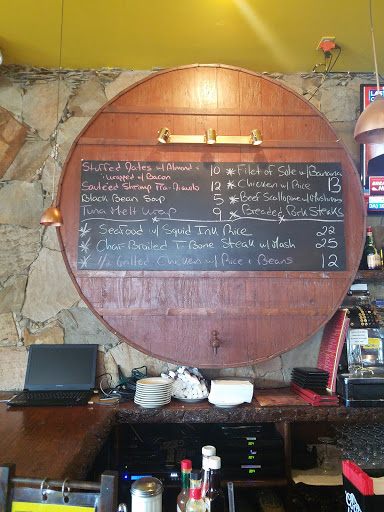 Stuffed Dates w/ Almond + 10
wrapped w/ Bacon
Sauteéd Shrimp Fra-Diavolo 12
Black Bean Soup 5
Tuna Melt Wrap 9
* Filet of Sole w/ Bananas
* Chicken w/ Rice B
* Beef Scallopine w/ Mushrooms
* Breaded Pork Steaks
* Seafood w/ Squid Ink Rice 22
* Char-Broiled T-Bone Steak w/ Mash 25
* 1/2 Grilled Chicken w/ Rice + Beans 12